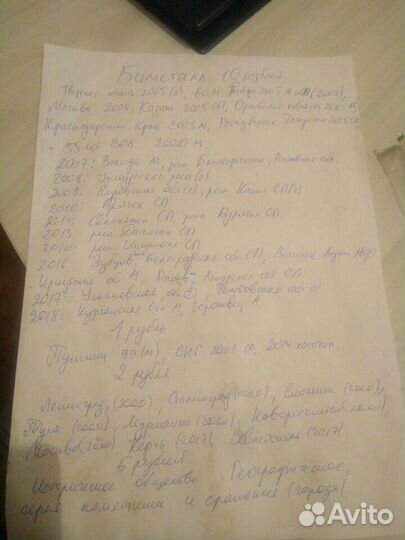 Биметалл 10 рублей
Тверская область 2005 (2), 60 лет Победы 2005 М и СП (2005),
Москва 2005, Казань 2005 СП, Орловская область 2005 М,
Краснодарский Край 2005 М, Республика Татарстан 2005 СП
55 лет ВОВ 2000 М
2007: Вологда М, респ Башкортостан, Ростовская обл
2008: Удмуртская респ (2)
2009: Кировская обл (2), респ Коми СП (2)
2010: Брянск СП
2011: Соликамск СП, респ Бурятия СП
2013: респ Дагестан СП
2014: респ Ингушетия СП
2016 Зубцов, Белгородская обл СП, Великие Луки
Иркутская об М, Ржев, Амурская об СП
2017: Ульяновская об, Тамбовская об
2018: Курганская об М Гороховец
1 рубль
Пушкин 99 (м), СНГ 2001 СП, 2014 логотип
2 рубля
Ленинград (2000), Сталинград (2000), Смоленск (2000),
Тула (2000), Мурманск (2000), Новороссийск 2000,
Москва (2000), Керчь (2017), Севастополь (2017)
5 рублей
Историческое общество, Географическое,
серия памятники и сражения (города)
Avito